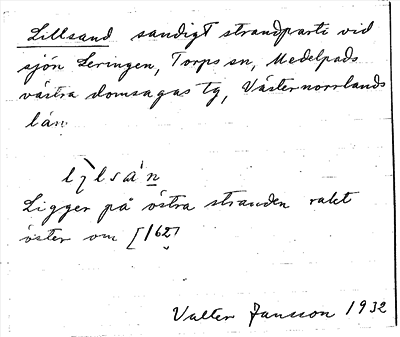 Lillsand sandigt strandparti vid
sjön Leringen, Torps sn, Medelpads
västra domsagas tg, Västernorrlands
län.
Ligger på östra stranden rakt
öster om [162]
Valter Jansson 1932